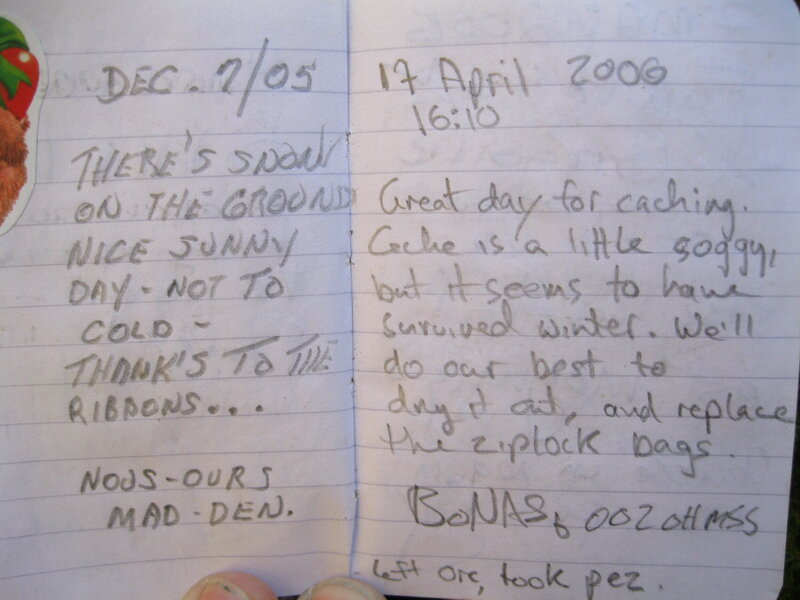 DEC. 7/05
THERE'S SNOW
ON THE GROUND
NICE SUNNY
DAY - NOT TO
COLD -
THANK'S TO THE
RIBBONS...
NOUS-OURS
MAD-DEN.
17 April 2006
16:10
Great day for caching.
Cache is a little soggy,
but it seems to have
survived winter. We'll
do our best to
dry it out, and replace
the ziplock bags.
BoNAS, 002OHMSS
left orc, took pez.